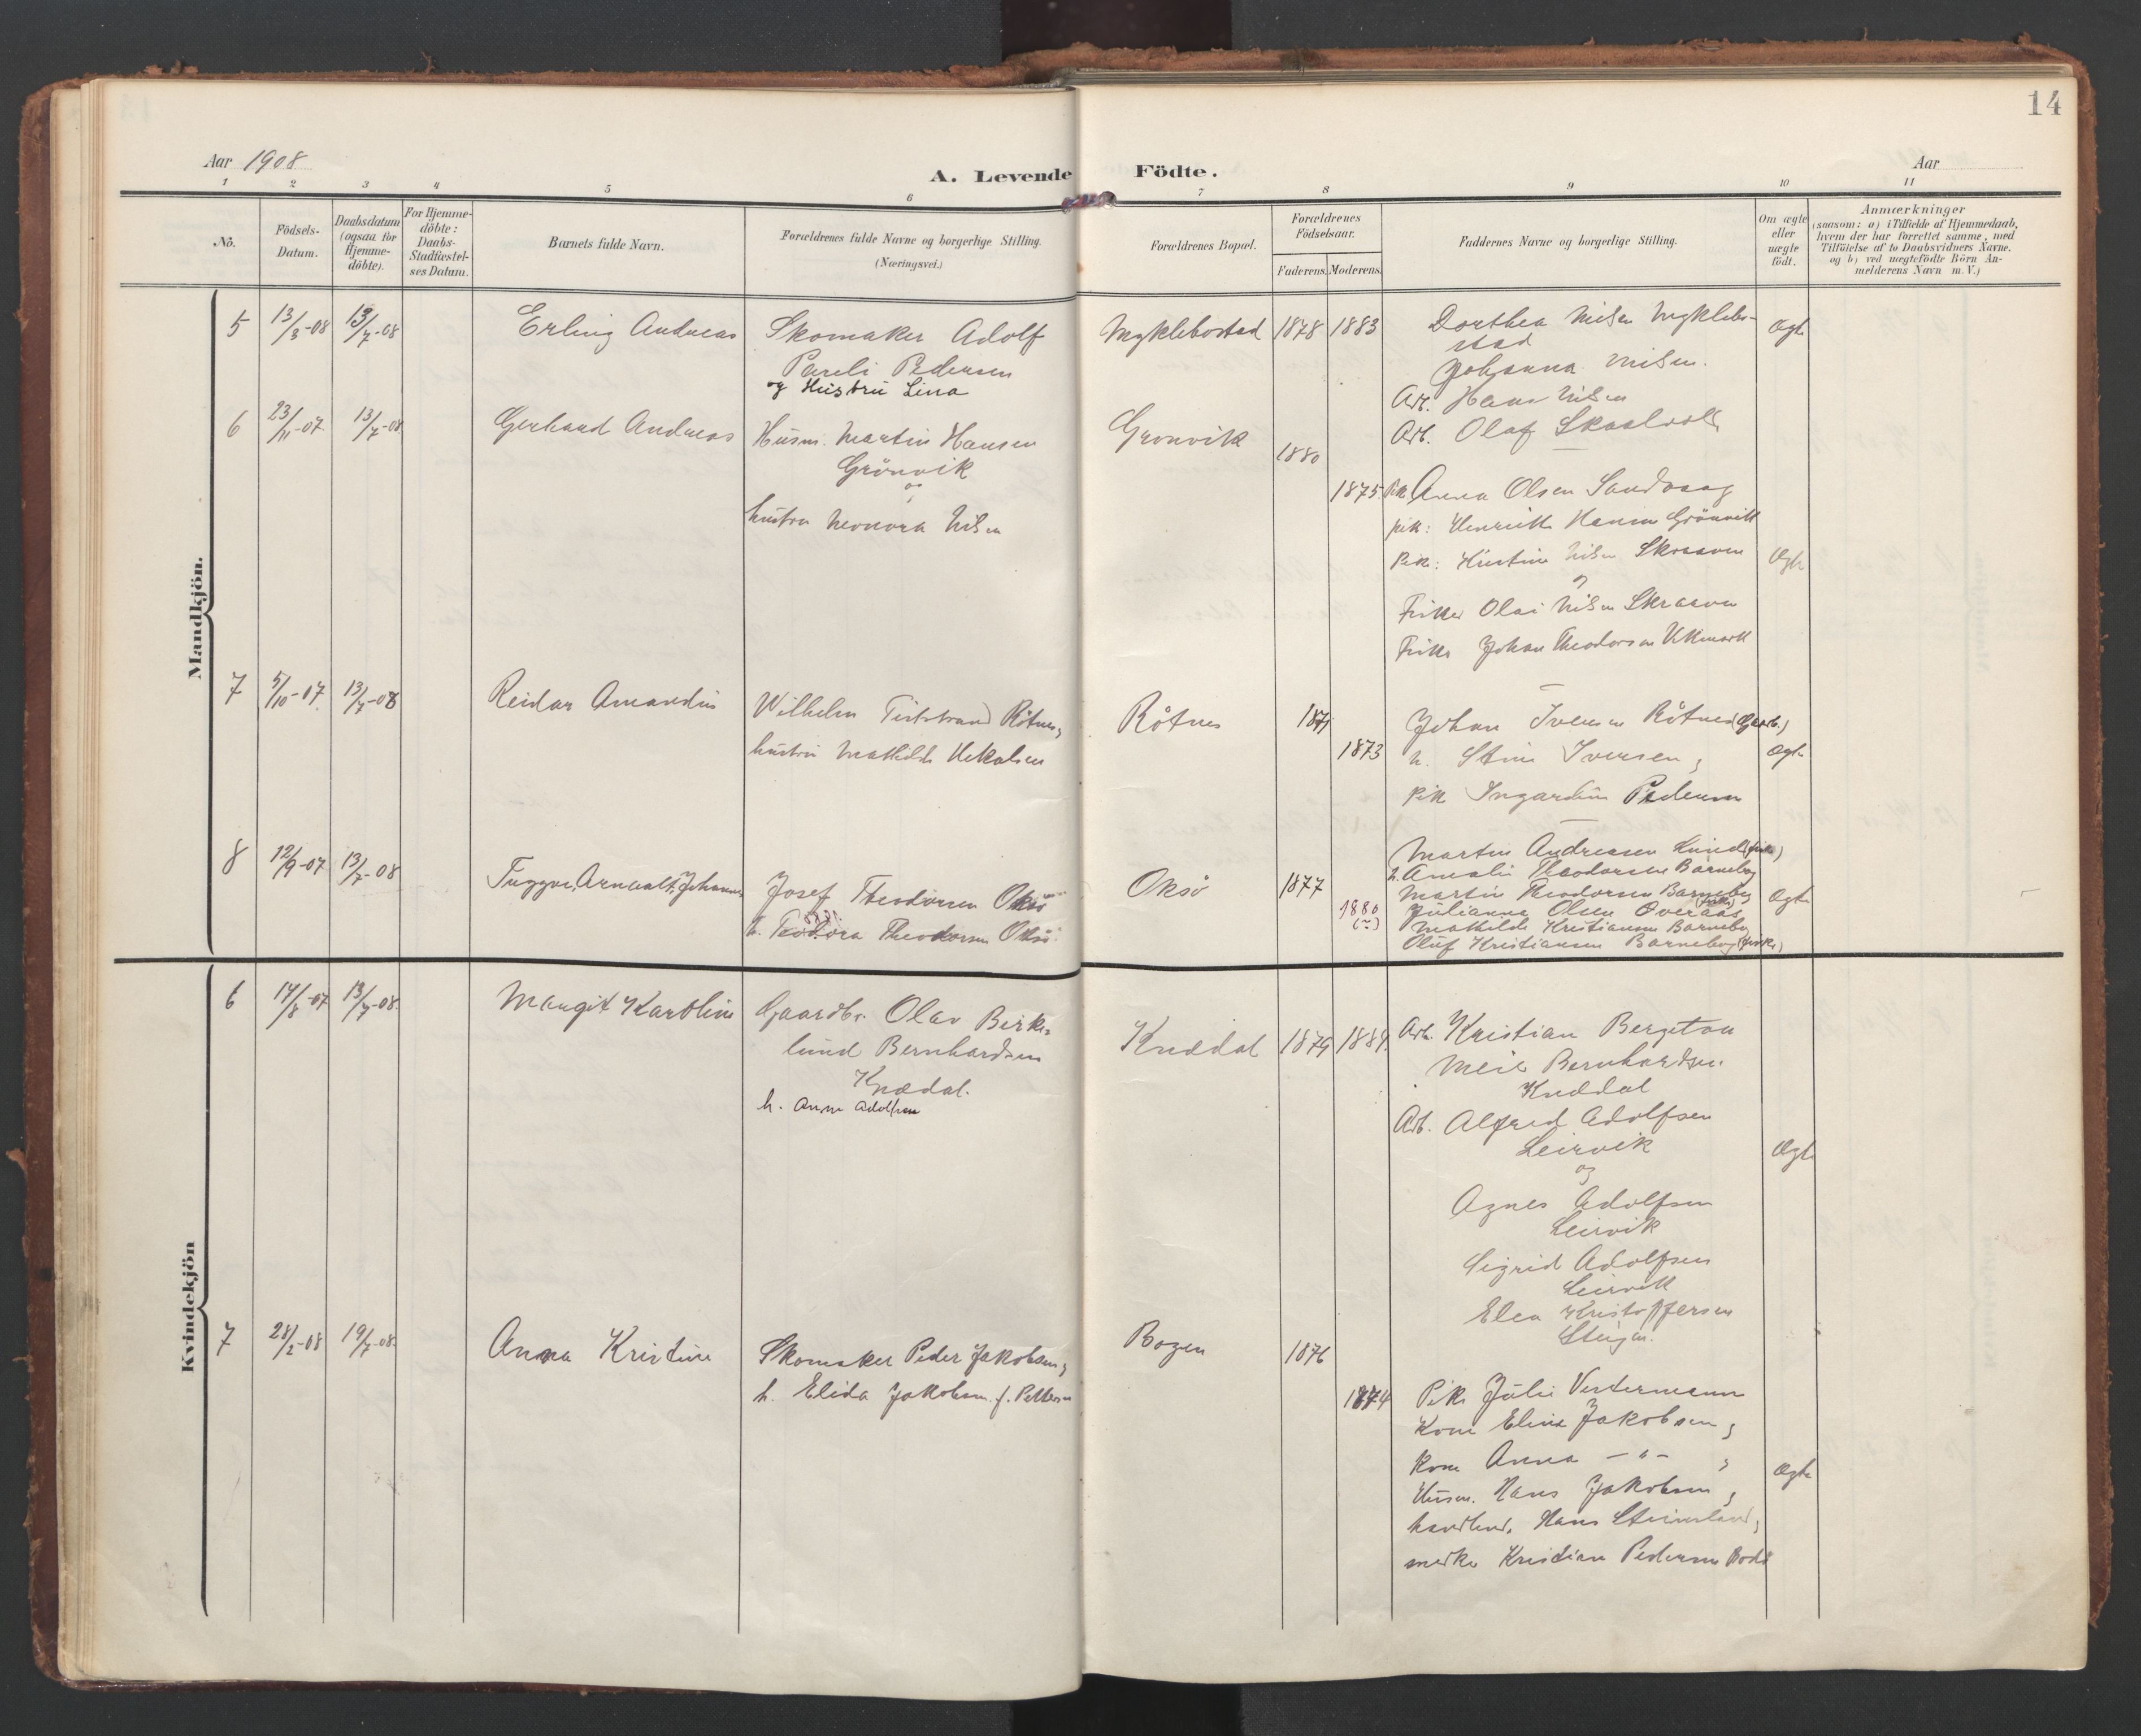 14
Aar 1908
A. Levende Födte.
Aar
1 2 3 4 5 6 7 8 9 10 11
No.
Födsels-
Datum.
Daabsdatum
(ogsaa for
Hjemme-
döbte).
For Hjemme-
döbte:
Daabs-
Stadfæstel-
ses Datum.
Barnets fulde Navn.
Forældrenes fulde Navne og borgerlige Stilling.
(Næringsvei.)
Forældrenes Bopæl.
Forældrenes
Födselsaar.
Faderens. Moderens.
Faddernes Navne og borgerlige Stilling.
Om ægte
eller
uægte
födt.
Anmærkninger
(saasom: a) i Tilfælde af Hjemmedaab,
hvem der har forrettet samme, med
Tilföielse af to Daabsvidners Navne.
og b) ved uægtefödte Börn An-
melderens Navn m. V.)
Mandkjön.
5 13/3-08 13/7-08 Erling Andreas
Skomaker Adolf
Pareli Pedersen
og Hustru Lina
Myklebostad 1878 1883
Dorthea Nilsen Myklebo-
stad
Johanna Nilsen.
Arb. Hans Nilsen
Arb. Olaf
Ægte
6 23/11-07 13/7-08 Gerhard Andreas
Husm. Martin Hansen
Grönvik
og
hustru Nilsen
Gronvik 1880
1875
Pik Anna Olsen Sandvaag
pik: Henrikke Hansen Grönvik
Pik: Nilsen Skraaven
og
Fisker Olai Nilsen Skraaven
Fisker Johan Theodorsen
Ægte
7 5/10-07 13/7-08 Reidar Amandus
Wilhelm Rötnes,
hustru Mathilde
Rötnes 1871
1873
Johan Iversen Rötnes (Gaardb.)
h. Stine Iversen,
Pik Pedersen
Ægte
8 12/9-07 13/7-08 Tryggve, Arnealt, Johannes
Josef Theodorsen Oksö
h. Teodora Theodorsen Oksö
Oksö 1877
1880
(~)
Martin Andreasen (fisker)
h. Amalie Theodorsen Barneboy
Martin Theodorsen Barneboy
(fisker)
Julianna Olsen Överaas
Mathilde Kristiansen Barneboy
Oluf Kristiansen Barneboy (fisker)
Ægte
Kvindekjön
6 14/8-07 13/7-08. Margit Karoline
Gaardbr. Olav Birke-
lund Bernhardsen
Knædal.
h. Anne Adolfsen
Knedal 1879 1884.
Arb. Kristian Bergeton
Bernhardsen.
Kneddal
Arb. Alfred Adolfsen
Leirvik
og
Agnes Adolfsen
Leirvik
Sigrid Adolfsen
Leirvik
Elea Kristoffersen
Steigen.
Ægte
7 28/2-08 19/7-08. Anna Kristine
Skomaker Peder Jakobsen,
h. Elida Jakobsen f. Pettersen
Bogen 1876
1874
Pike Julie Vestermann
Kone Elina Jakobsen,
Kone Anna — " — ,
Husm. Hans Jakobsen,
handlend. Hans Steinsland,
Kristian Pedersen Bodö
Ægte